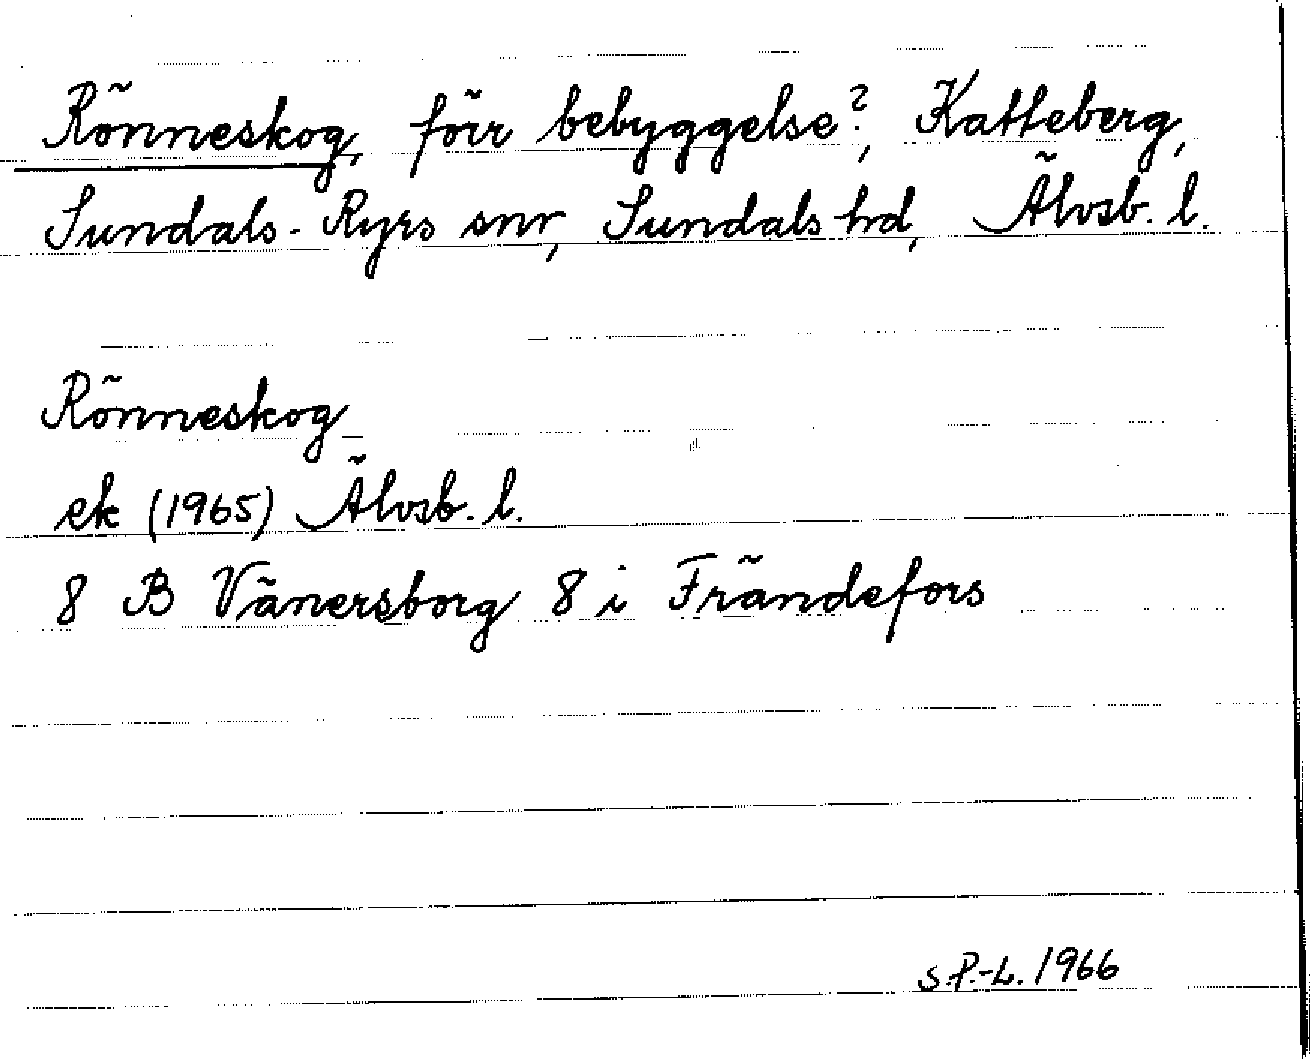 Rönneskog, förr bebyggelse?, Katteberg,
Sundals-Ryrs snr, Sundals hd, Älvsb. l.
Rönneskog
ek (1965) Älvsb. l.
8 B Vänersborg 8 i Frändefors
S.P.-L. 1966